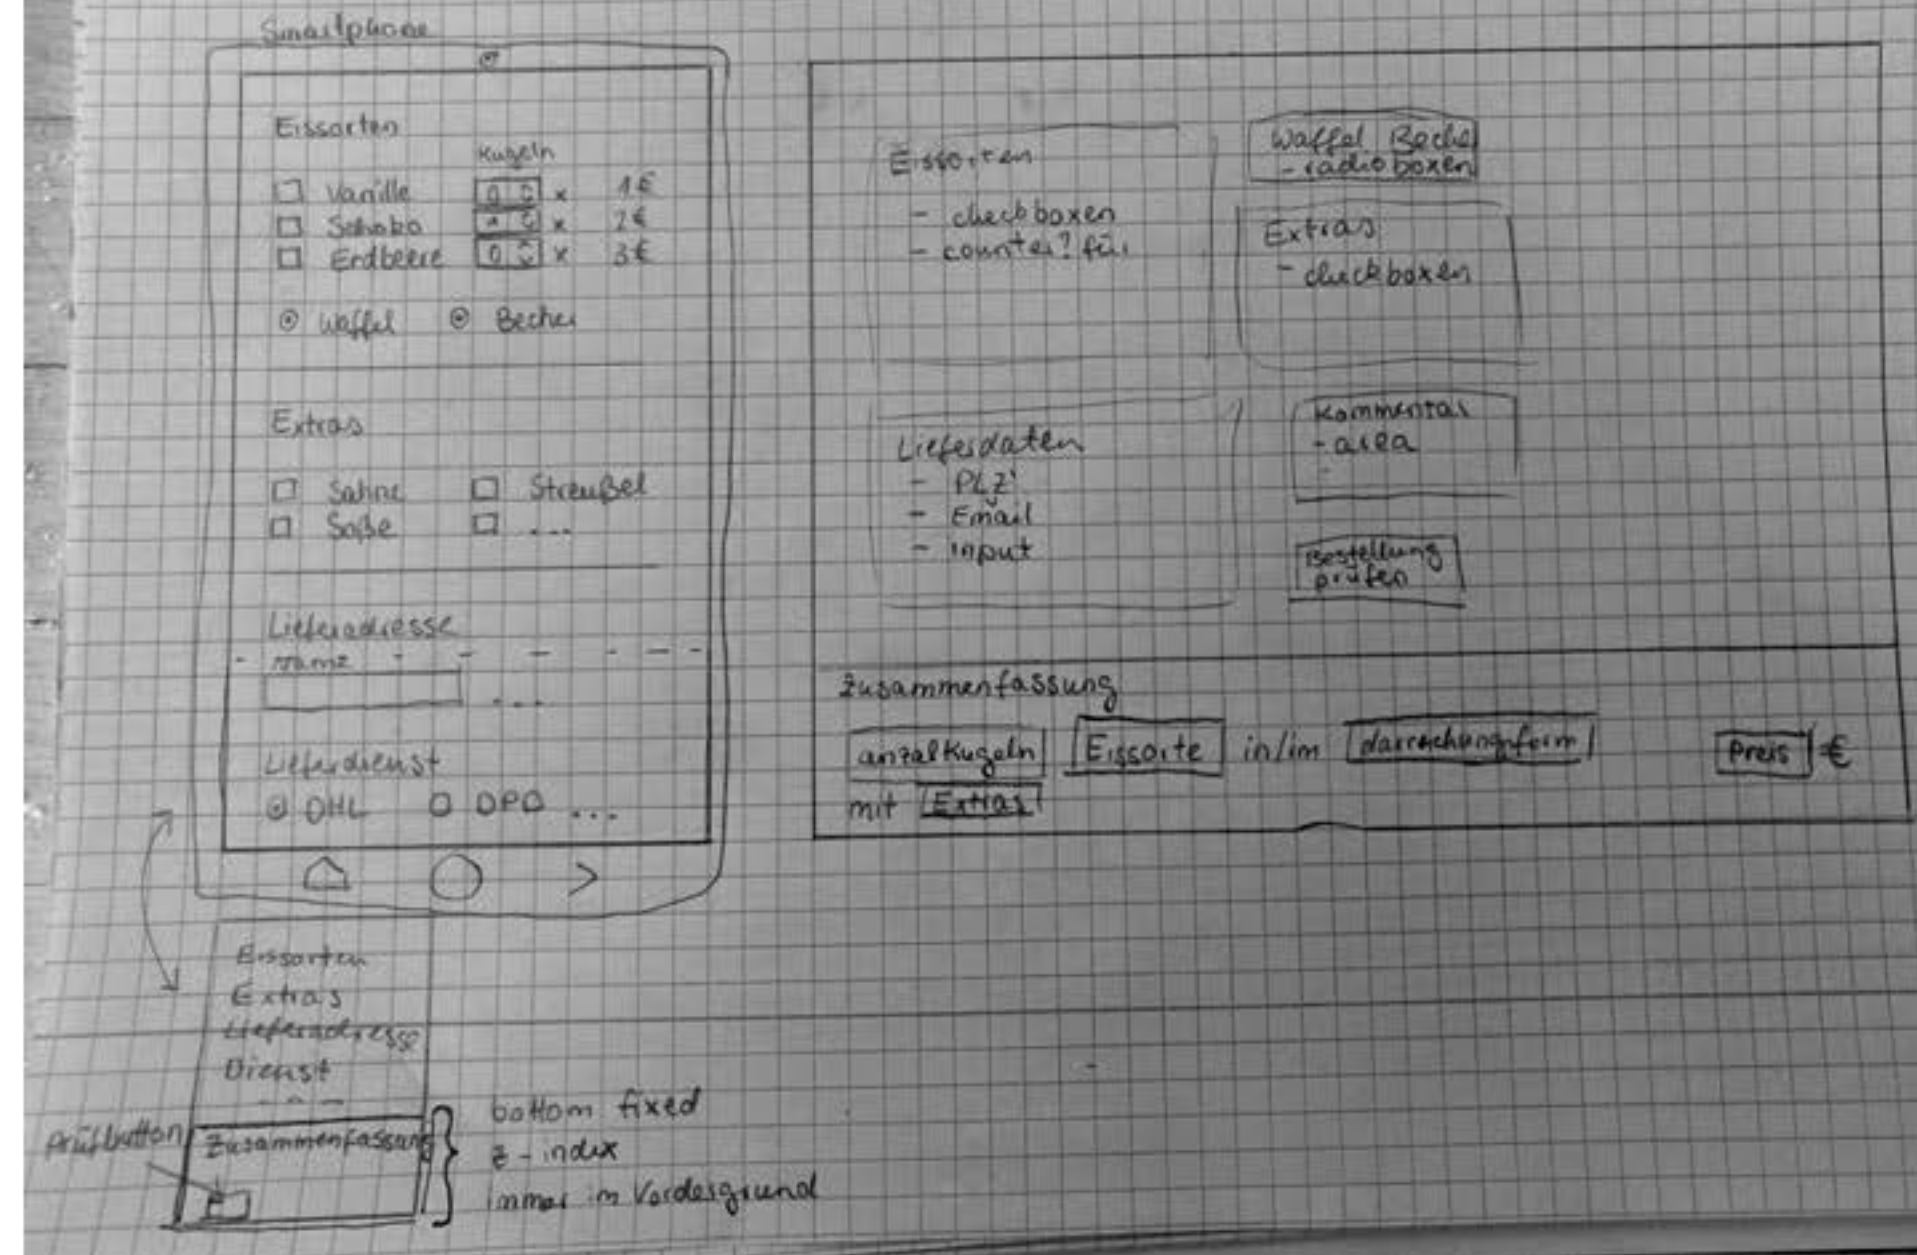 Smartphone
Eissorten
Kugeln
Vanille 0 x 1€
Schoko x 2€
Erdbeere 0 x 3€
Waffel Becher
Extras
Sahne Streußel
Soße ...
Lieferadresse
Name
...
Lieferdienst
DHL DPD ...
Eissorten
Extras
Lieferadresse
Dienst
Prüfbutton
Zusammenfassung
bottom fixed
z-index
immer im Vordergrund
Eissorten
- checkboxen
- counter? für
Waffel Becher
- radioboxen
Extras
- checkboxen
Lieferdaten
- PLZ
- Email
- input
Kommentar
- area
Bestellung
prüfen
Zusammenfassung
anzalKugeln Eissorte in/im darreichungform Preis €
mit Extras